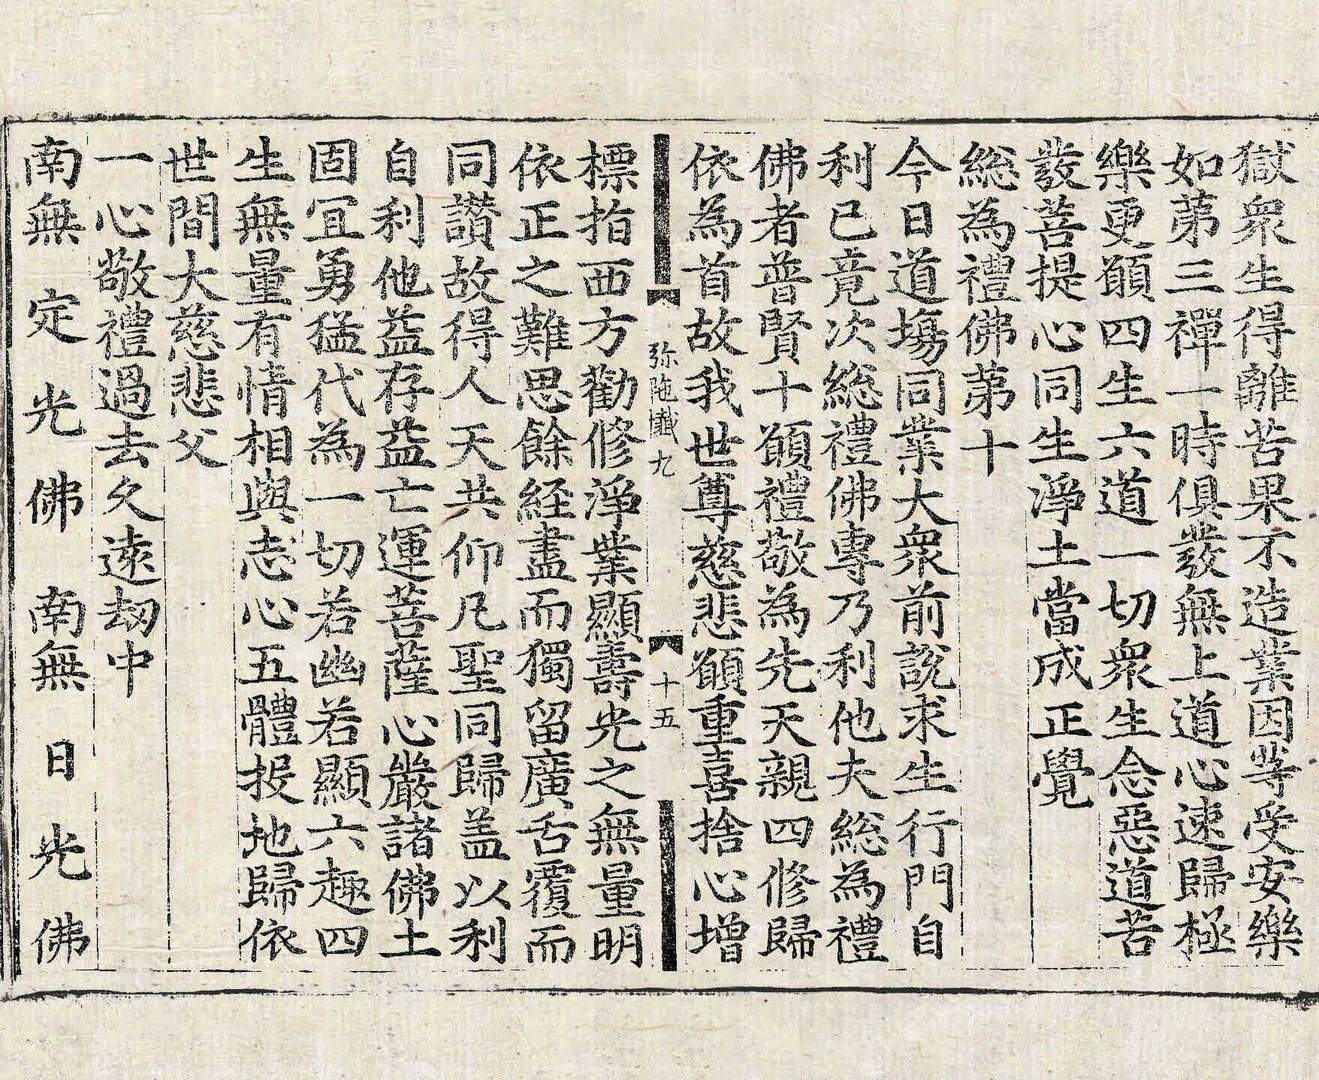 獄衆生得離苦果不造業因等受安樂
如第三禪一時俱發無上道心速歸極
樂更願四生六道一切衆生念惡道苦
發菩提心同生淨土當成正覺
総為禮佛第十
今日道場同業大衆前說求生行門自
利已竟次総禮佛專乃利他夫総為禮
佛者普賢十願禮敬為先天親四修歸
依為首故我世尊慈悲願重喜捨心增
弥陁懺九
十五
標指西方勸修淨業顯壽光之無量明
依正之難思餘経盡而獨留廣舌覆而
同讃故得人天共仰凡聖同歸盖以利
自利他益存益亡運菩薩心嚴諸佛土
固冝勇猛代為一切若幽若顯六趣四
生無量有情相與志心五體投地歸依
世間大慈悲父
一心敬禮過去久遠劫中
南無 定光佛 南無日光佛